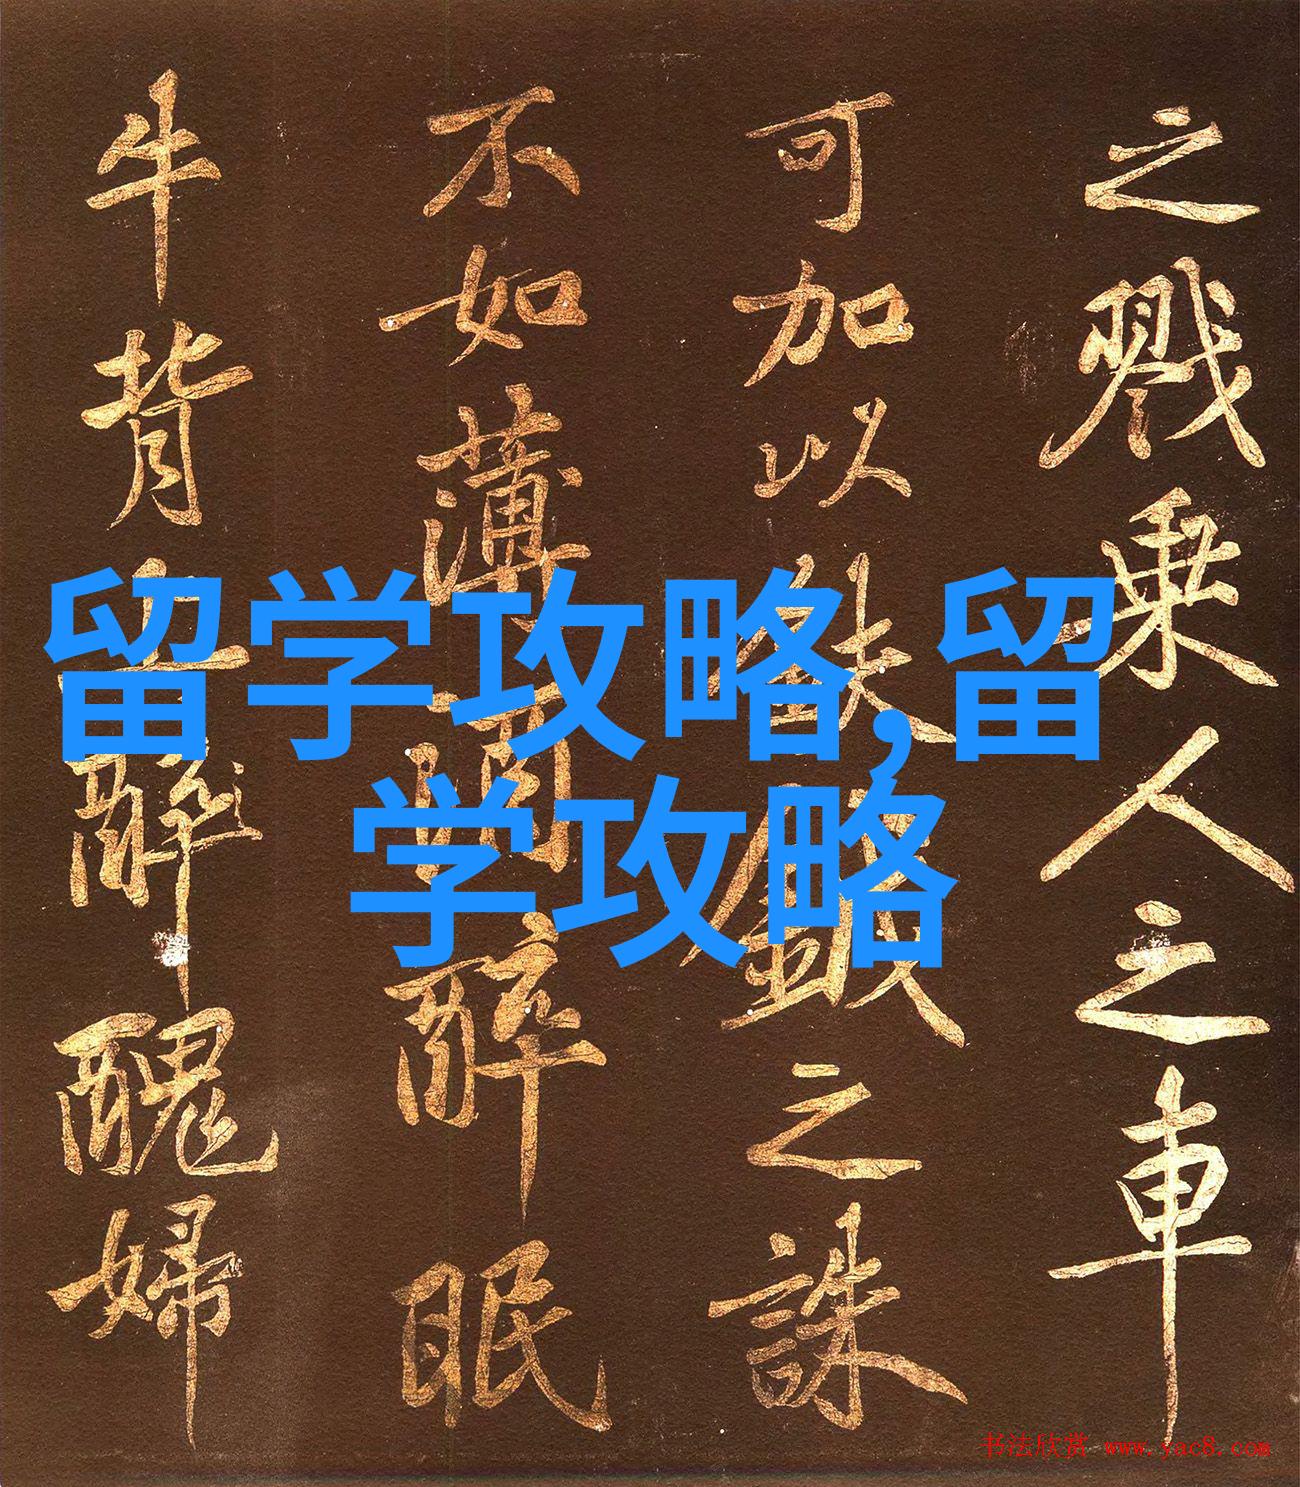 之戮乘人之車
可加以鈇鉞之誅
不如薄醉眠
牛背上醜婦
留学攻略,留
学攻略
书法欣赏 www.yac8.com